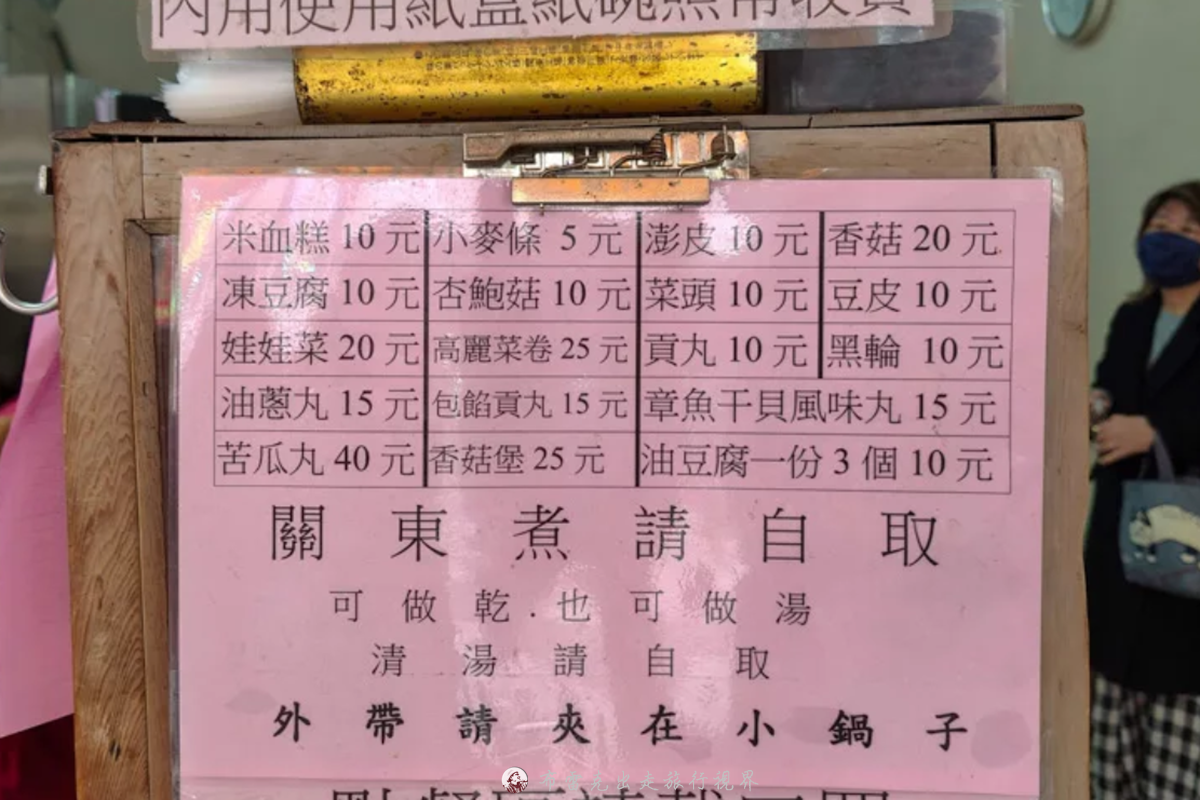 內用使用紙盒紙碗無帶收費
米血糕 10 元 小麥條 5 元 澎皮 10 元 香菇 20 元
凍豆腐 10 元 杏鮑菇 10 元 菜頭 10 元 豆皮 10 元
娃娃菜 20 元 高麗菜卷 25 元 貢丸 10 元 黑輪 10 元
油蔥丸 15 元 包餡貢丸 15 元 章魚干貝風味丸 15 元
苦瓜丸 40 元 香菇堡 25 元 油豆腐一份 3 個 10 元
關東煮請自取
可做乾.也可做湯
清湯請自取
外帶請夾在小鍋子
出走旅行視界